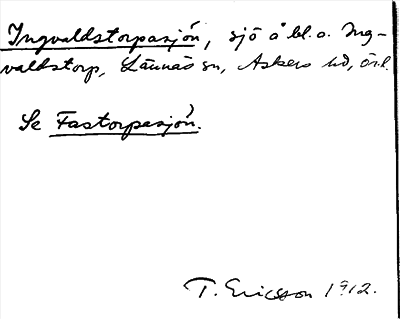 Ingvaldstorpasjön, sjö å bl. o. Ing-
valdstorp, Lännäs sn, Askers hd, ör.l.
Se Fastorpasjön.
T. Ericsson 1912.